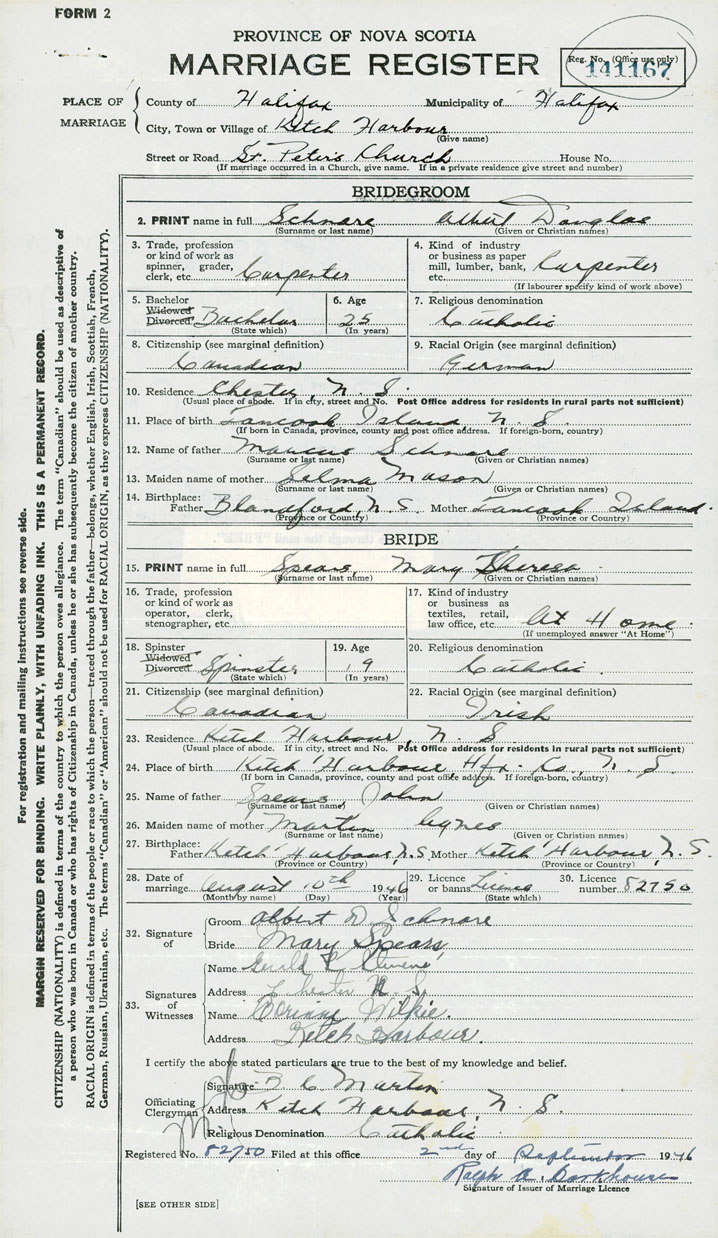 FORM 2
PROVINCE OF NOVA SCOTIA
MARRIAGE REGISTER
Reg. No. (Office use only)
141167
PLACE OF MARRIAGE
County of Halifax Municipality of Halifax
City, Town or Village of Ketch Harbour
(Give name)
Street or Road St. Peter's Church House No.
(If marriage occurred in a Church, give name. If in a private residence give street and number)
BRIDEGROOM
2. PRINT name in full Schnare Albert Douglas
(Surname or last name) (Given or Christian names)
3. Trade, profession or kind of work as spinner, grader, clerk, etc. Carpenter
4. Kind of industry or business as paper mill, lumber, bank, etc. Carpenter
(If labourer specify kind of work above)
5. Bachelor Widowed Divorced Bachelor
(State which)
6. Age 25
(In years)
7. Religious denomination
Catholic
8. Citizenship (see marginal definition)
Canadian
9. Racial Origin (see marginal definition)
German
10. Residence Chester, N. S.
(Usual place of abode. If in city, street and No. Post Office address for residents in rural parts not sufficient)
11. Place of birth Tancook Island N. S.
(If born in Canada, province, county and post office address. If foreign-born, country)
12. Name of father Marcus Schnare
(Surname or last name) (Given or Christian names)
13. Maiden name of mother Selma Mason
(Surname or last name) (Given or Christian names)
14. Birthplace: Father Blandford, N.S. Mother Tancook Island.
(Province or Country) (Province or Country)
BRIDE
15. PRINT name in full Spears, Mary Theresa
(Surname or last name) (Given or Christian names)
16. Trade, profession or kind of work as operator, clerk, stenographer, etc.
17. Kind of industry or business as textiles, retail, law office, etc. At Home
(If unemployed answer "At Home")
18. Spinster Widowed Divorced Spinster
(State which)
19. Age 19
(In years)
20. Religious denomination
Catholic.
21. Citizenship (see marginal definition)
Canadian
22. Racial Origin (see marginal definition)
Irish
23. Residence Ketch Harbour, N. S
(Usual place of abode. If in city, street and No. Post Office address for residents in rural parts not sufficient)
24. Place of birth Ketch Harbour, Hfx. Co., N. S.
(If born in Canada, province, county and post office address. If foreign-born, country)
25. Name of father Spears John
(Surname or last name) (Given or Christian names)
26. Maiden name of mother Martin Agnes
(Surname or last name) (Given or Christian names)
27. Birthplace: Father Ketch Harbour, N.S Mother Ketch Harbour, N. S.
(Province or Country) (Province or Country)
28. Date of marriage August 10th 1946
(Month by name) (Day) (Year)
29. Licence or banns Licence
(State which)
30. Licence number 82750
32. Signature of
Groom Albert D Schnare
Bride Mary Spears
33. Signatures of Witnesses
Name Gerald
Address Chester N. S.
Name Corinne Wilkie.
Address Ketch Harbour.
I certify the above stated particulars are true to the best of my knowledge and belief.
Officiating Clergyman
Signature Martin
Address Ketch Harbour, N. S.
Religious Denomination Catholic
Registered No. 82750 Filed at this office 2nd day of September 1946
Ralph
Signature of Issuer of Marriage Licence
[SEE OTHER SIDE]
For registration and mailing instructions see reverse side.
MARGIN RESERVED FOR BINDING. WRITE PLAINLY, WITH UNFADING INK. THIS IS A PERMANENT RECORD.
CITIZENSHIP (NATIONALITY) is defined in terms of the country to which the person owes allegiance. The term "Canadian" should be used as descriptive of
a person who was born in Canada or who has rights of Citizenship in Canada, unless he or she has subsequently become the citizen of another country.
RACIAL ORIGIN is defined in terms of the people or race to which the person—traced through the father—belongs, whether English, Irish, Scottish, French,
German, Russian, Ukrainian, etc. The terms "Canadian" or "American" should not be used for RACIAL ORIGIN, as they express CITIZENSHIP (NATIONALITY).